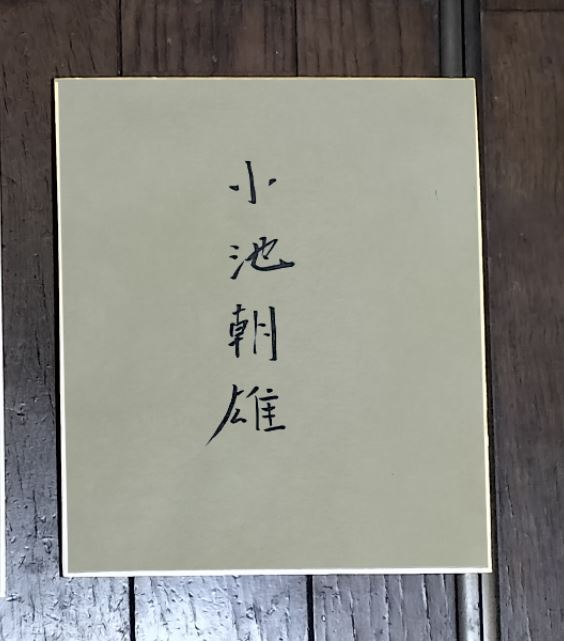 小池朝雄